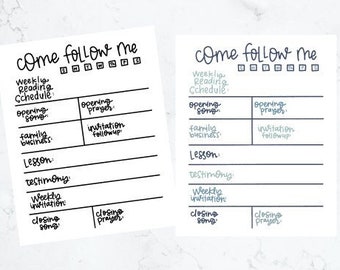 come follow me
S M T W T F S
weekly
Reading
Schedule:
opening
song:
opening
prayer:
family
business:
invitation
followup:
Lesson:
testimony:
Weekly
invitation:
closing
song:
closing
prayer:
come follow me
S M T W T F S
weekly
Reading
Schedule:
opening
song:
opening
prayer:
family
business:
invitation
followup:
Lesson:
testimony:
Weekly
invitation:
closing
song:
closing
prayer: